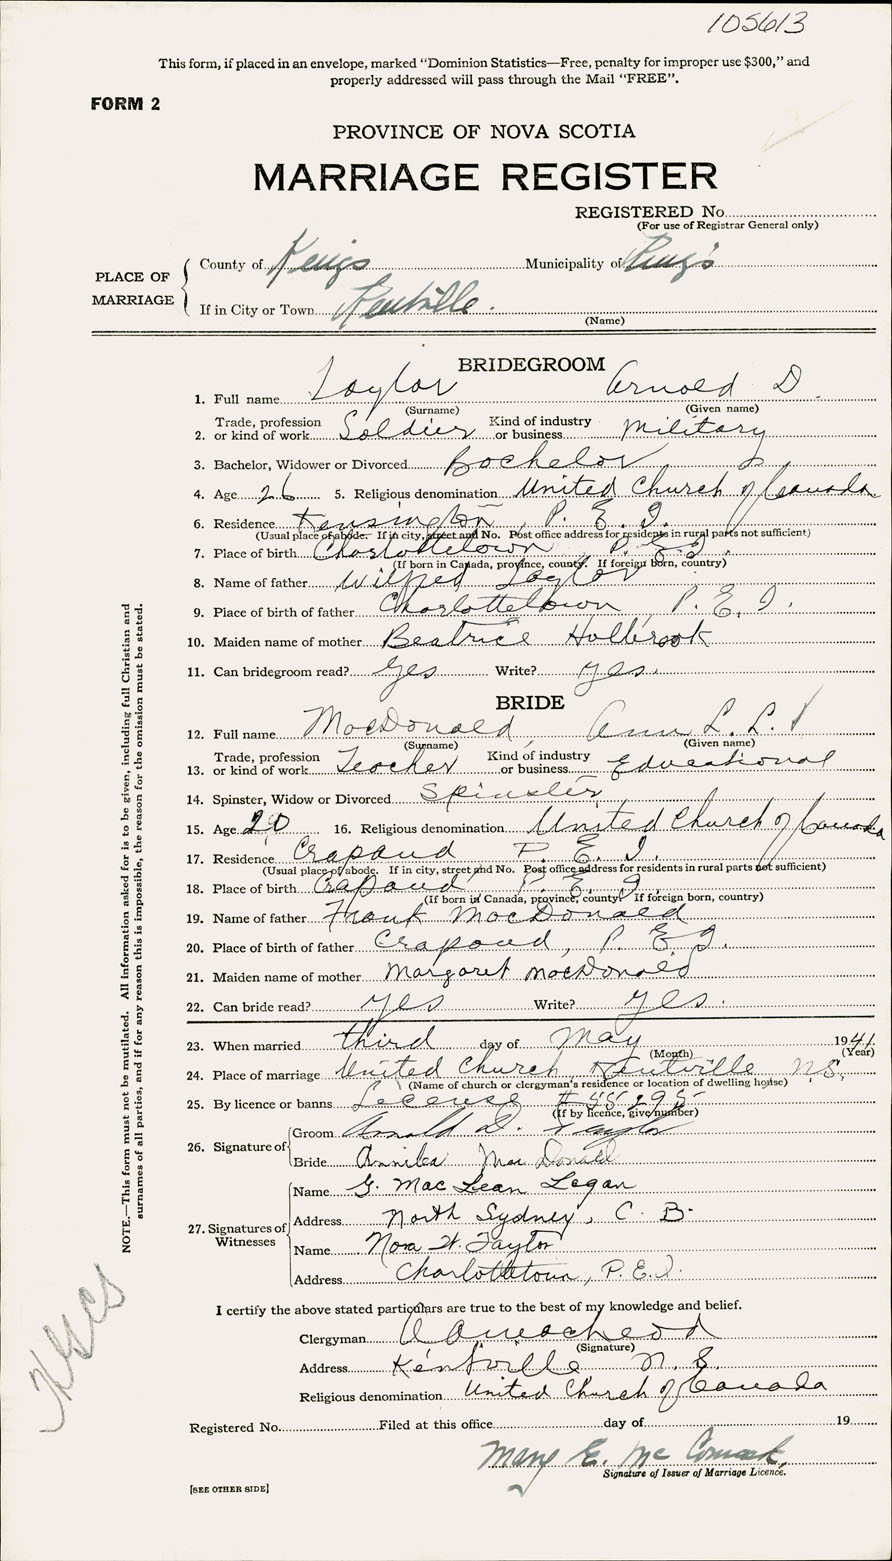 105613
This form, if placed in an envelope, marked "Dominion Statistics—Free, penalty for improper use $300," and
properly addressed will pass through the Mail "FREE".
FORM 2
PROVINCE OF NOVA SCOTIA
MARRIAGE REGISTER
REGISTERED No.
(For use of Registrar General only)
PLACE OF MARRIAGE
County of Kings Municipality of King's
If in City or Town Kentville.
(Name)
BRIDEGROOM
1. Full name Taylor Arnold D.
(Surname) (Given name)
2. Trade, profession or kind of work Soldier Kind of industry or business Military
3. Bachelor, Widower or Divorced Bachelor
4. Age 26 5. Religious denomination United Church of Canada
6. Residence Kensington, P. E. I.
(Usual place of abode. If in city, street and No. Post office address for residents in rural parts not sufficient)
7. Place of birth Charlottetown P. E. I.
(If born in Canada, province, county. If foreign born, country)
8. Name of father Wilfred Taylor
9. Place of birth of father Charlottetown, P. E. I.
10. Maiden name of mother Beatrice Holbrook
11. Can bridegroom read? Yes Write? Yes.
BRIDE
12. Full name MacDonald, Ann L. L.
(Surname) (Given name)
13. Trade, profession or kind of work Teacher Kind of industry or business Educational
14. Spinster, Widow or Divorced Spinster
15. Age 20 16. Religious denomination United Church of Canada
17. Residence Crapaud P. E. I.
(Usual place of abode. If in city, street and No. Post office address for residents in rural parts not sufficient)
18. Place of birth Crapaud P. E. I.
(If born in Canada, province, county. If foreign born, country)
19. Name of father Frank MacDonald
20. Place of birth of father Crapaud, P. E. I.
21. Maiden name of mother Margaret MacDonald
22. Can bride read? Yes Write? Yes.
23. When married third day of May 1941
(Month) (Year)
24. Place of marriage United Church, Kentville N.S.
(Name of church or clergyman's residence or location of dwelling house)
25. By licence or banns License # 55295
(If by licence, give number)
26. Signature of
Groom Arnold D. Taylor
Bride Annila MacDonald
27. Signatures of Witnesses
Name G. MacLean Logan
Address North Sydney, C. B.
Name Nora W. Taylor
Address Charlottetown, P.E.I.
I certify the above stated particulars are true to the best of my knowledge and belief.
Clergyman
(Signature)
Address Kentville N. S.
Religious denomination United Church of Canada
Registered No. Filed at this office day of 19
Mary E. McCormack
Signature of Issuer of Marriage Licence.
[SEE OTHER SIDE]
NOTE.—This form must not be mutilated. All information asked for is to be given, including full Christian and
surnames of all parties, and if for any reason this is impossible, the reason for the omission must be stated.